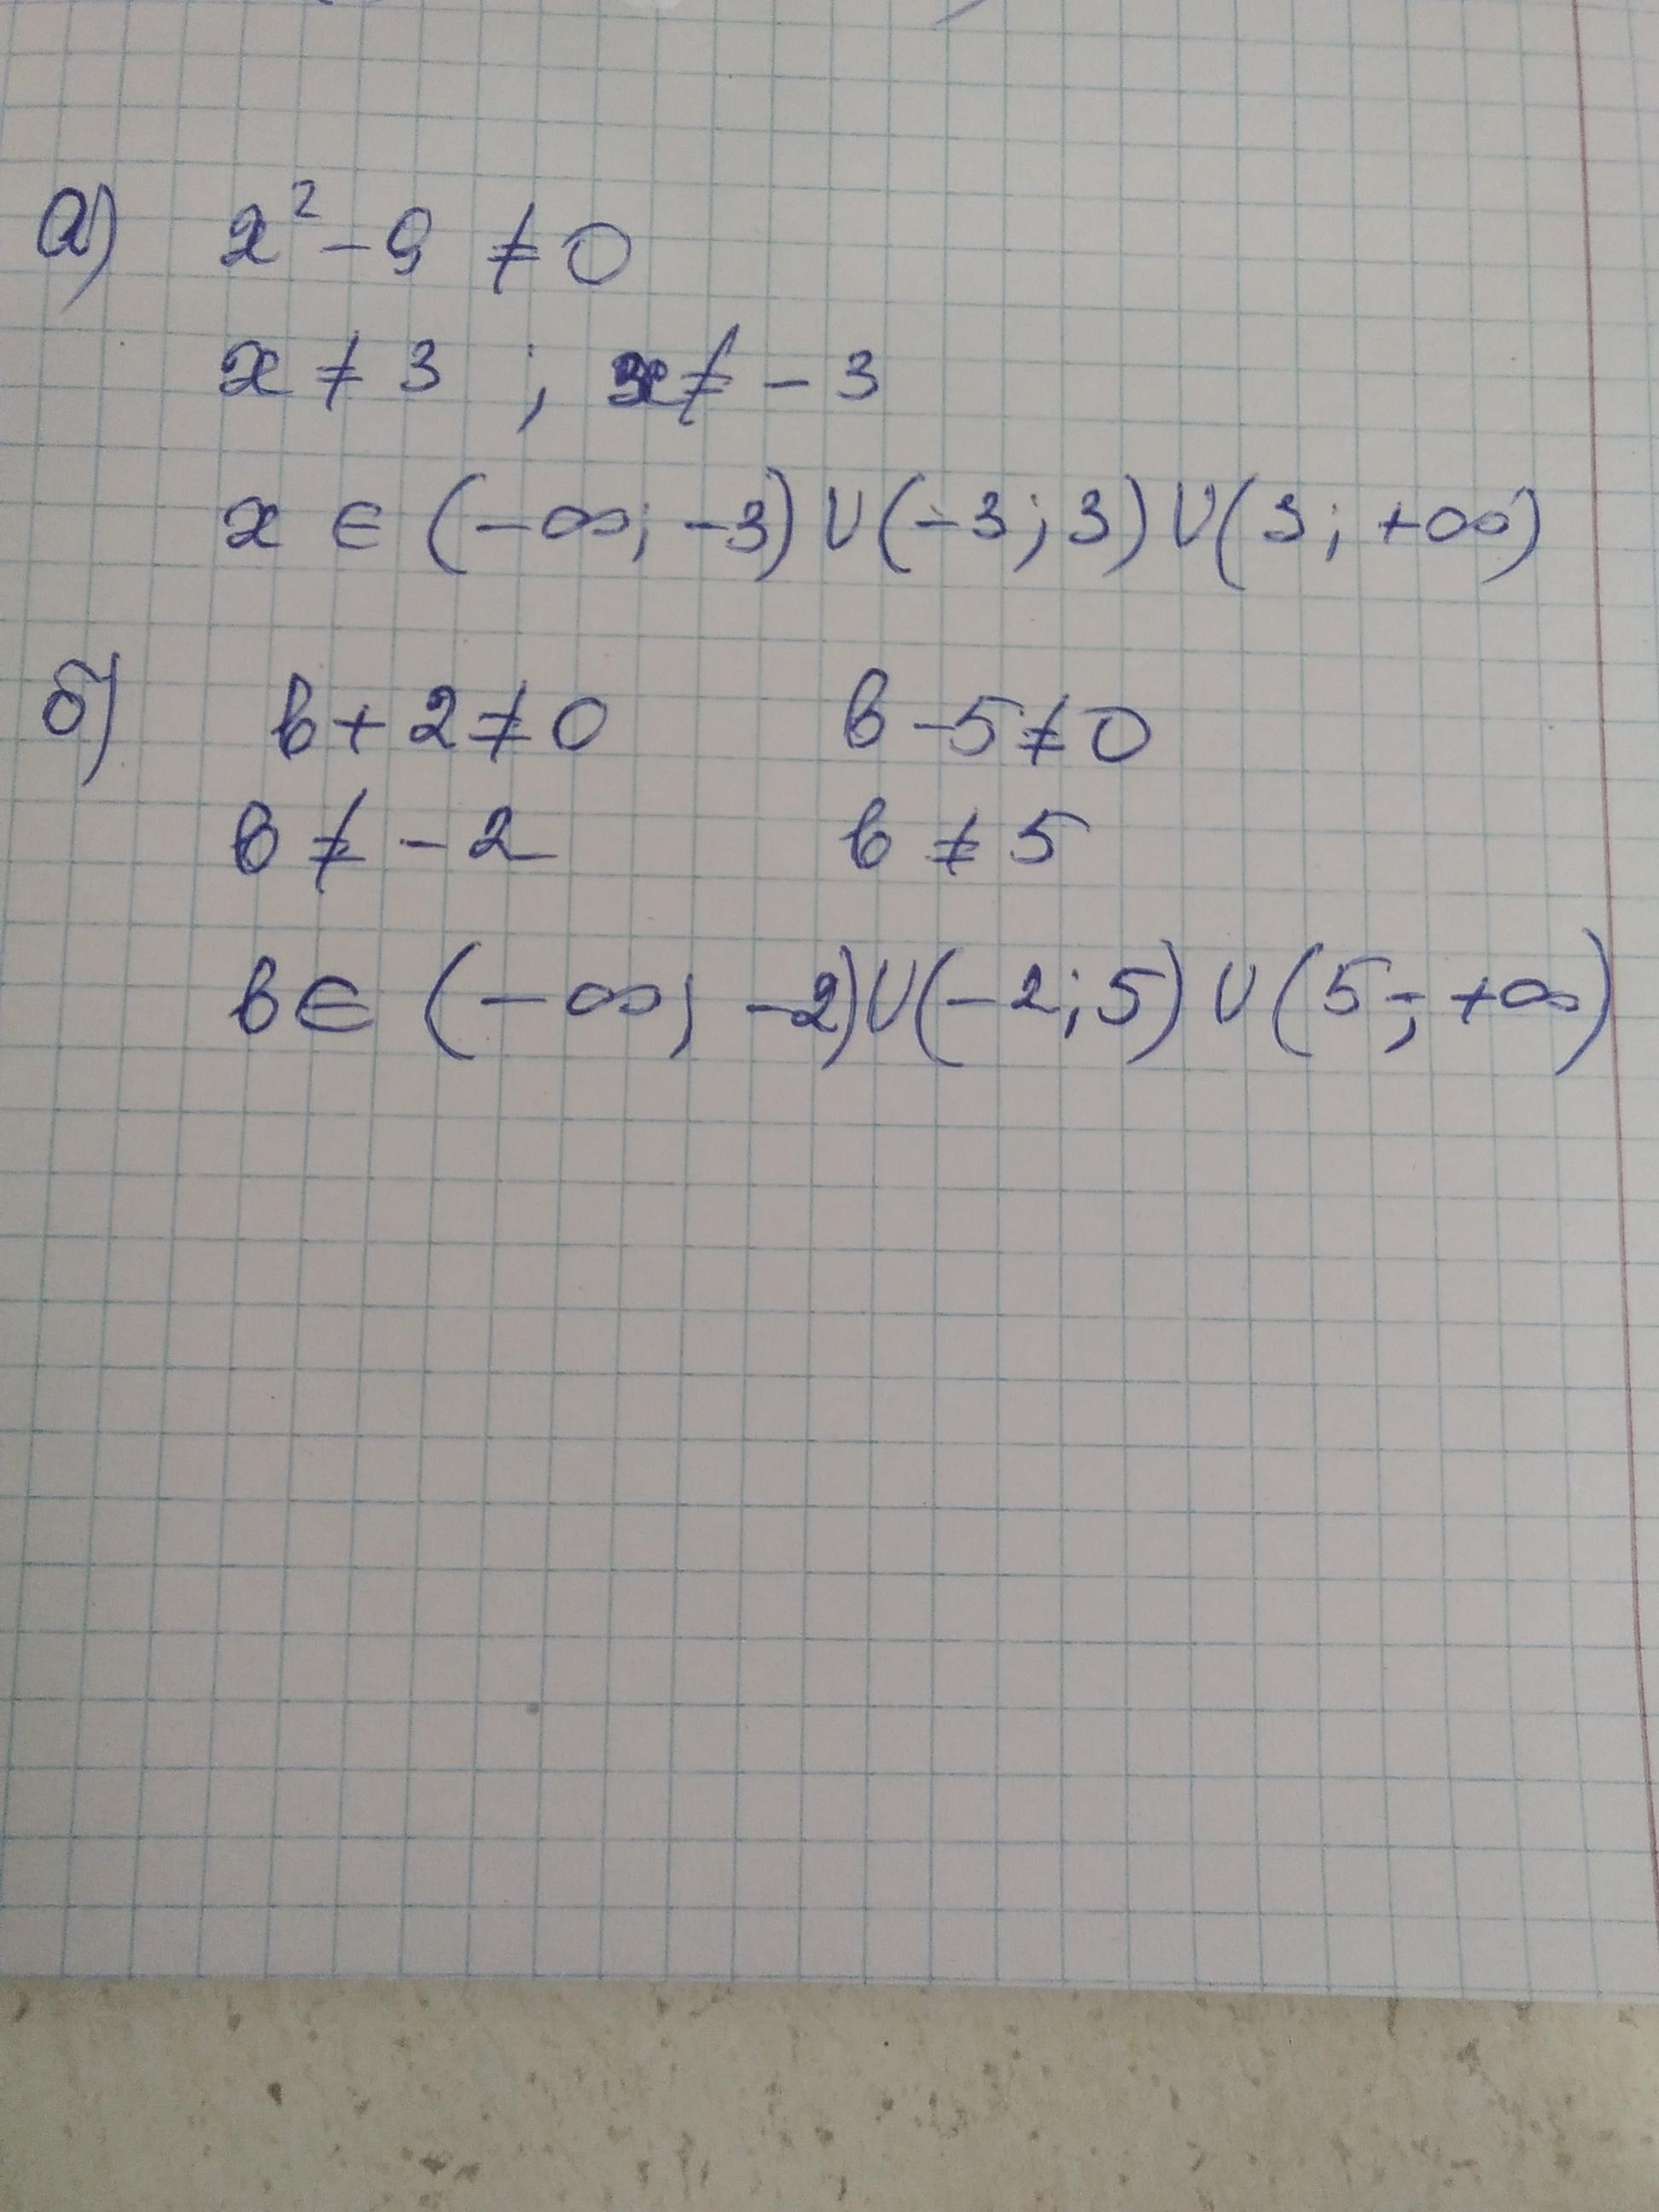 а) x² - 9 ≠ 0
x ≠ 3 ; x ≠ - 3
x ∈ (-∞; -3) ∪ (-3; 3) ∪ (3; +∞)
б) в + 2 ≠ 0 в - 5 ≠ 0
в ≠ - 2 в ≠ 5
в ∈ (-∞; -2) ∪ (-2; 5) ∪ (5; +∞)